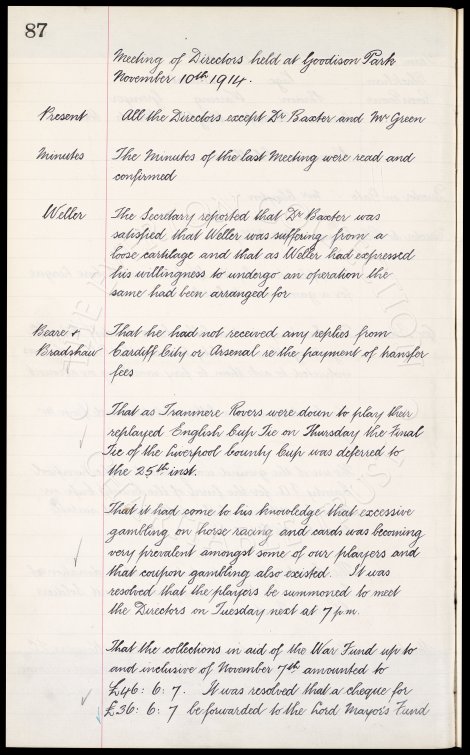 87
Meeting of Directors held at Goodison Park
November 10th 1914.
Present All the Directors except Dr Baxter and Mr Green
Minutes The Minutes of the last Meeting were read and
confirmed
Weller The Secretary reported that Dr Baxter was
satisfied that Weller was suffering from a
loose cartilage and that as Weller had expressed
his willingness to undergo an operation the
same had been arranged for
Beare & That he had not received any replies from
Bradshaw Cardiff City or Arsenal re the payment of transfer
fees
That as Tranmere Rovers were down to play their
replayed English Cup Tie on Thursday the Final
Tie of the Liverpool County Cup was deferred to
the 25th inst.
That it had come to his knowledge that excessive
gambling on horse racing and cards was becoming
very prevalent amongst some of our players and
that coupon gambling also existed. It was
resolved that the players be summoned to meet
the Directors on Tuesday next at 7 p.m.
That the collections in aid of the War Fund up to
and inclusive of November 7th amounted to
£46: 6: 7. It was resolved that a cheque for
£36: 6: 7 be forwarded to the Lord Mayor's Fund